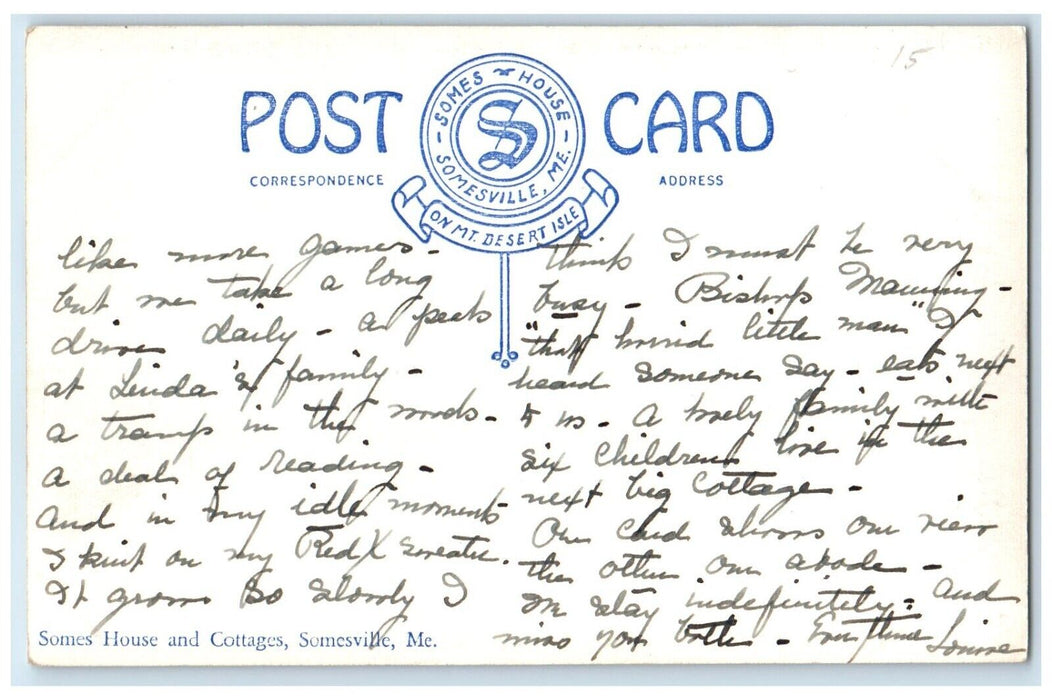 15
POST CARD
SOMES HOUSE
SOMESVILLE, ME.
S
ON MT. DESERT ISLE
CORRESPONDENCE
ADDRESS
like more games -
but we take a long
drive daily - a peek
at Linda's family -
a tramp in the woods -
a deal of reading -
and in my idle moments
I knit on my Red X sweater.
It grows so slowly I
think I must be very
busy - Bishop Manning -
"that horrid little man" I
heard someone say - eats next
to us - A lovely family with
six children live in the
next big cottage -
One card shows our view
the other our abode -
We stay indefinitely - and
miss you both - Ever thine
Louise
Somes House and Cottages, Somesville, Me.